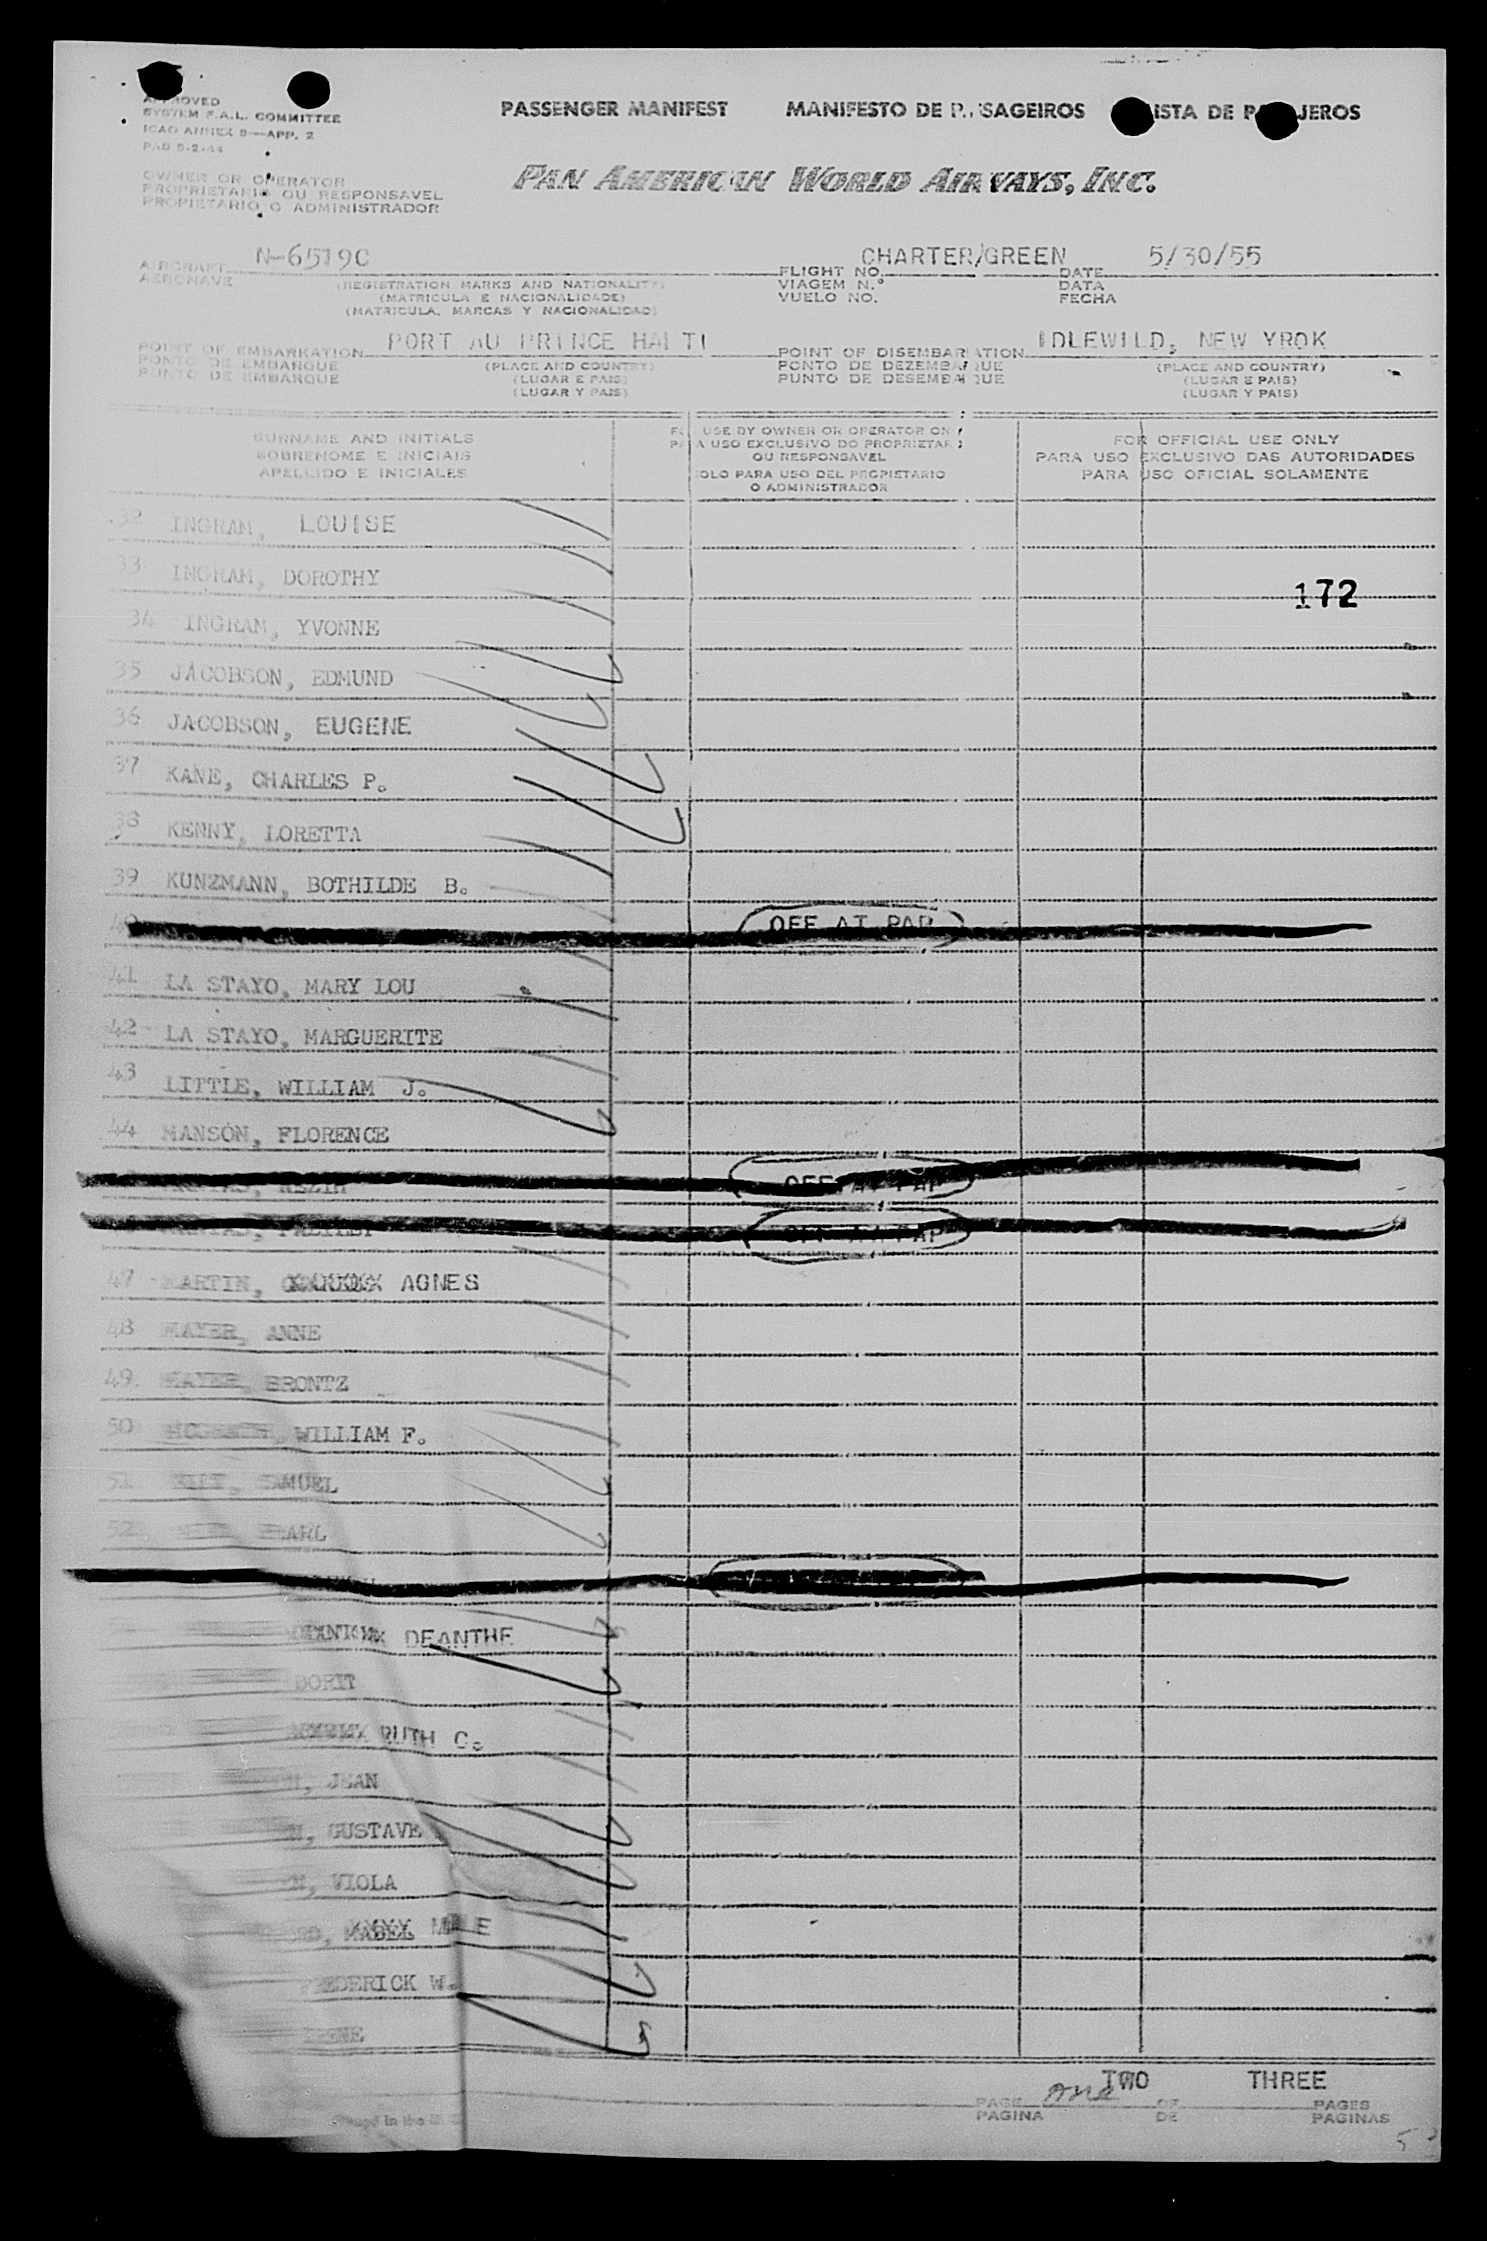 PASSENGER MANIFEST MANIFESTO DE SAGEIROS ISTA DE JEROS
APPROVED
SYSTEM F.A.L. COMMITTEE
ICAO ANNEX 9—APP. 2
OWNER OR OPERATOR
PROPRIETARIO OU RESPONSAVEL
PROPIETARIO O ADMINISTRADOR
PAN AMERICAN WORLD AIRWAYS, INC.
AIRCRAFT N-6519C FLIGHT NO. CHARTER/GREEN DATE 5/30/55
AERONAVE (REGISTRATION MARKS AND NATIONALITY) VIAGEM N.° DATA
(MATRICULA E NACIONALIDADE) VUELO NO. FECHA
(MATRICULA, MARCAS Y NACIONALIDAD)
POINT OF EMBARKATION PORT AU PRINCE HAITI POINT OF DISEMBARKATION IDLEWILD, NEW YROK
PONTO DE EMBARQUE (PLACE AND COUNTRY) PONTO DE DEZEMBARQUE (PLACE AND COUNTRY)
PUNTO DE EMBARQUE (LUGAR E PAIS) PUNTO DE DESEMBARQUE (LUGAR E PAIS)
(LUGAR Y PAIS) (LUGAR Y PAIS)
SURNAME AND INITIALS
SOBRENOME E INICIAIS
APELLIDO E INICIALES
USE BY OWNER OR OPERATOR ON
A USO EXCLUSIVO DO PROPRIETAR
OU RESPONSAVEL
OLO PARA USO DEL PROPIETARIO
O ADMINISTRADOR
FOR OFFICIAL USE ONLY
PARA USO EXCLUSIVO DAS AUTORIDADES
PARA USO OFICIAL SOLAMENTE
32 INGRAM, LOUISE
33 INGRAM, DOROTHY
172
34 INGRAM, YVONNE
35 JACOBSON, EDMUND
36 JACOBSON, EUGENE
37 KANE, CHARLES P.
38 KENNY, LORETTA
39 KUNZMANN, BOTHILDE B.
40 OFF AT PAP
41 LA STAYO, MARY LOU
42 LA STAYO, MARGUERITE
43 LITTLE, WILLIAM J.
44 MANSON, FLORENCE
OFF AT PAP
OFF AT PAP
47 MARTIN, AGNES
48 MAYER, ANNE
49 MAYER, BRONTZ
50 WILLIAM F.
51 SAMUEL
52
DEANTHE
DORIT
RUTH C.
, JEAN
N, GUSTAVE
N, VIOLA
MABEL
FREDERICK W.
IRENE
TWO THREE
PAGE one OF PAGES
PAGINA DE PAGINAS